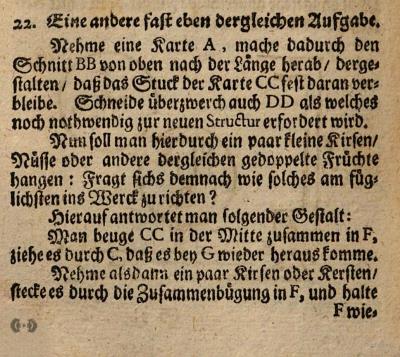 22. Eine andere fast eben dergleichen Aufgabe.
Nehme eine Karte A, mache dadurch den
Schnitt BB von oben nach der Länge herab/ derge-
stalten/ daß das Stuck der Karte CC fest daran ver-
bleibe. Schneide überzwerch auch DD als welches
noch nothwendig zur neuen Structur erfordert wird.
Nun soll man hierdurch ein paar kleine Kirsen/
Nüsse oder andere dergleichen gedoppelte Früchte
hangen: Fragt sichs demnach wie solches am füg-
lichsten ins Werck zu richten?
Hierauf antwortet man folgender Gestalt:
Man beuge CC in der Mitte zusammen in F,
ziehe es durch C, daß es bey G wieder heraus komme.
Nehme alsdann ein paar Kirsen oder Kersten/
stecke es durch die Zusammenbügung in F, und halte
F wie-